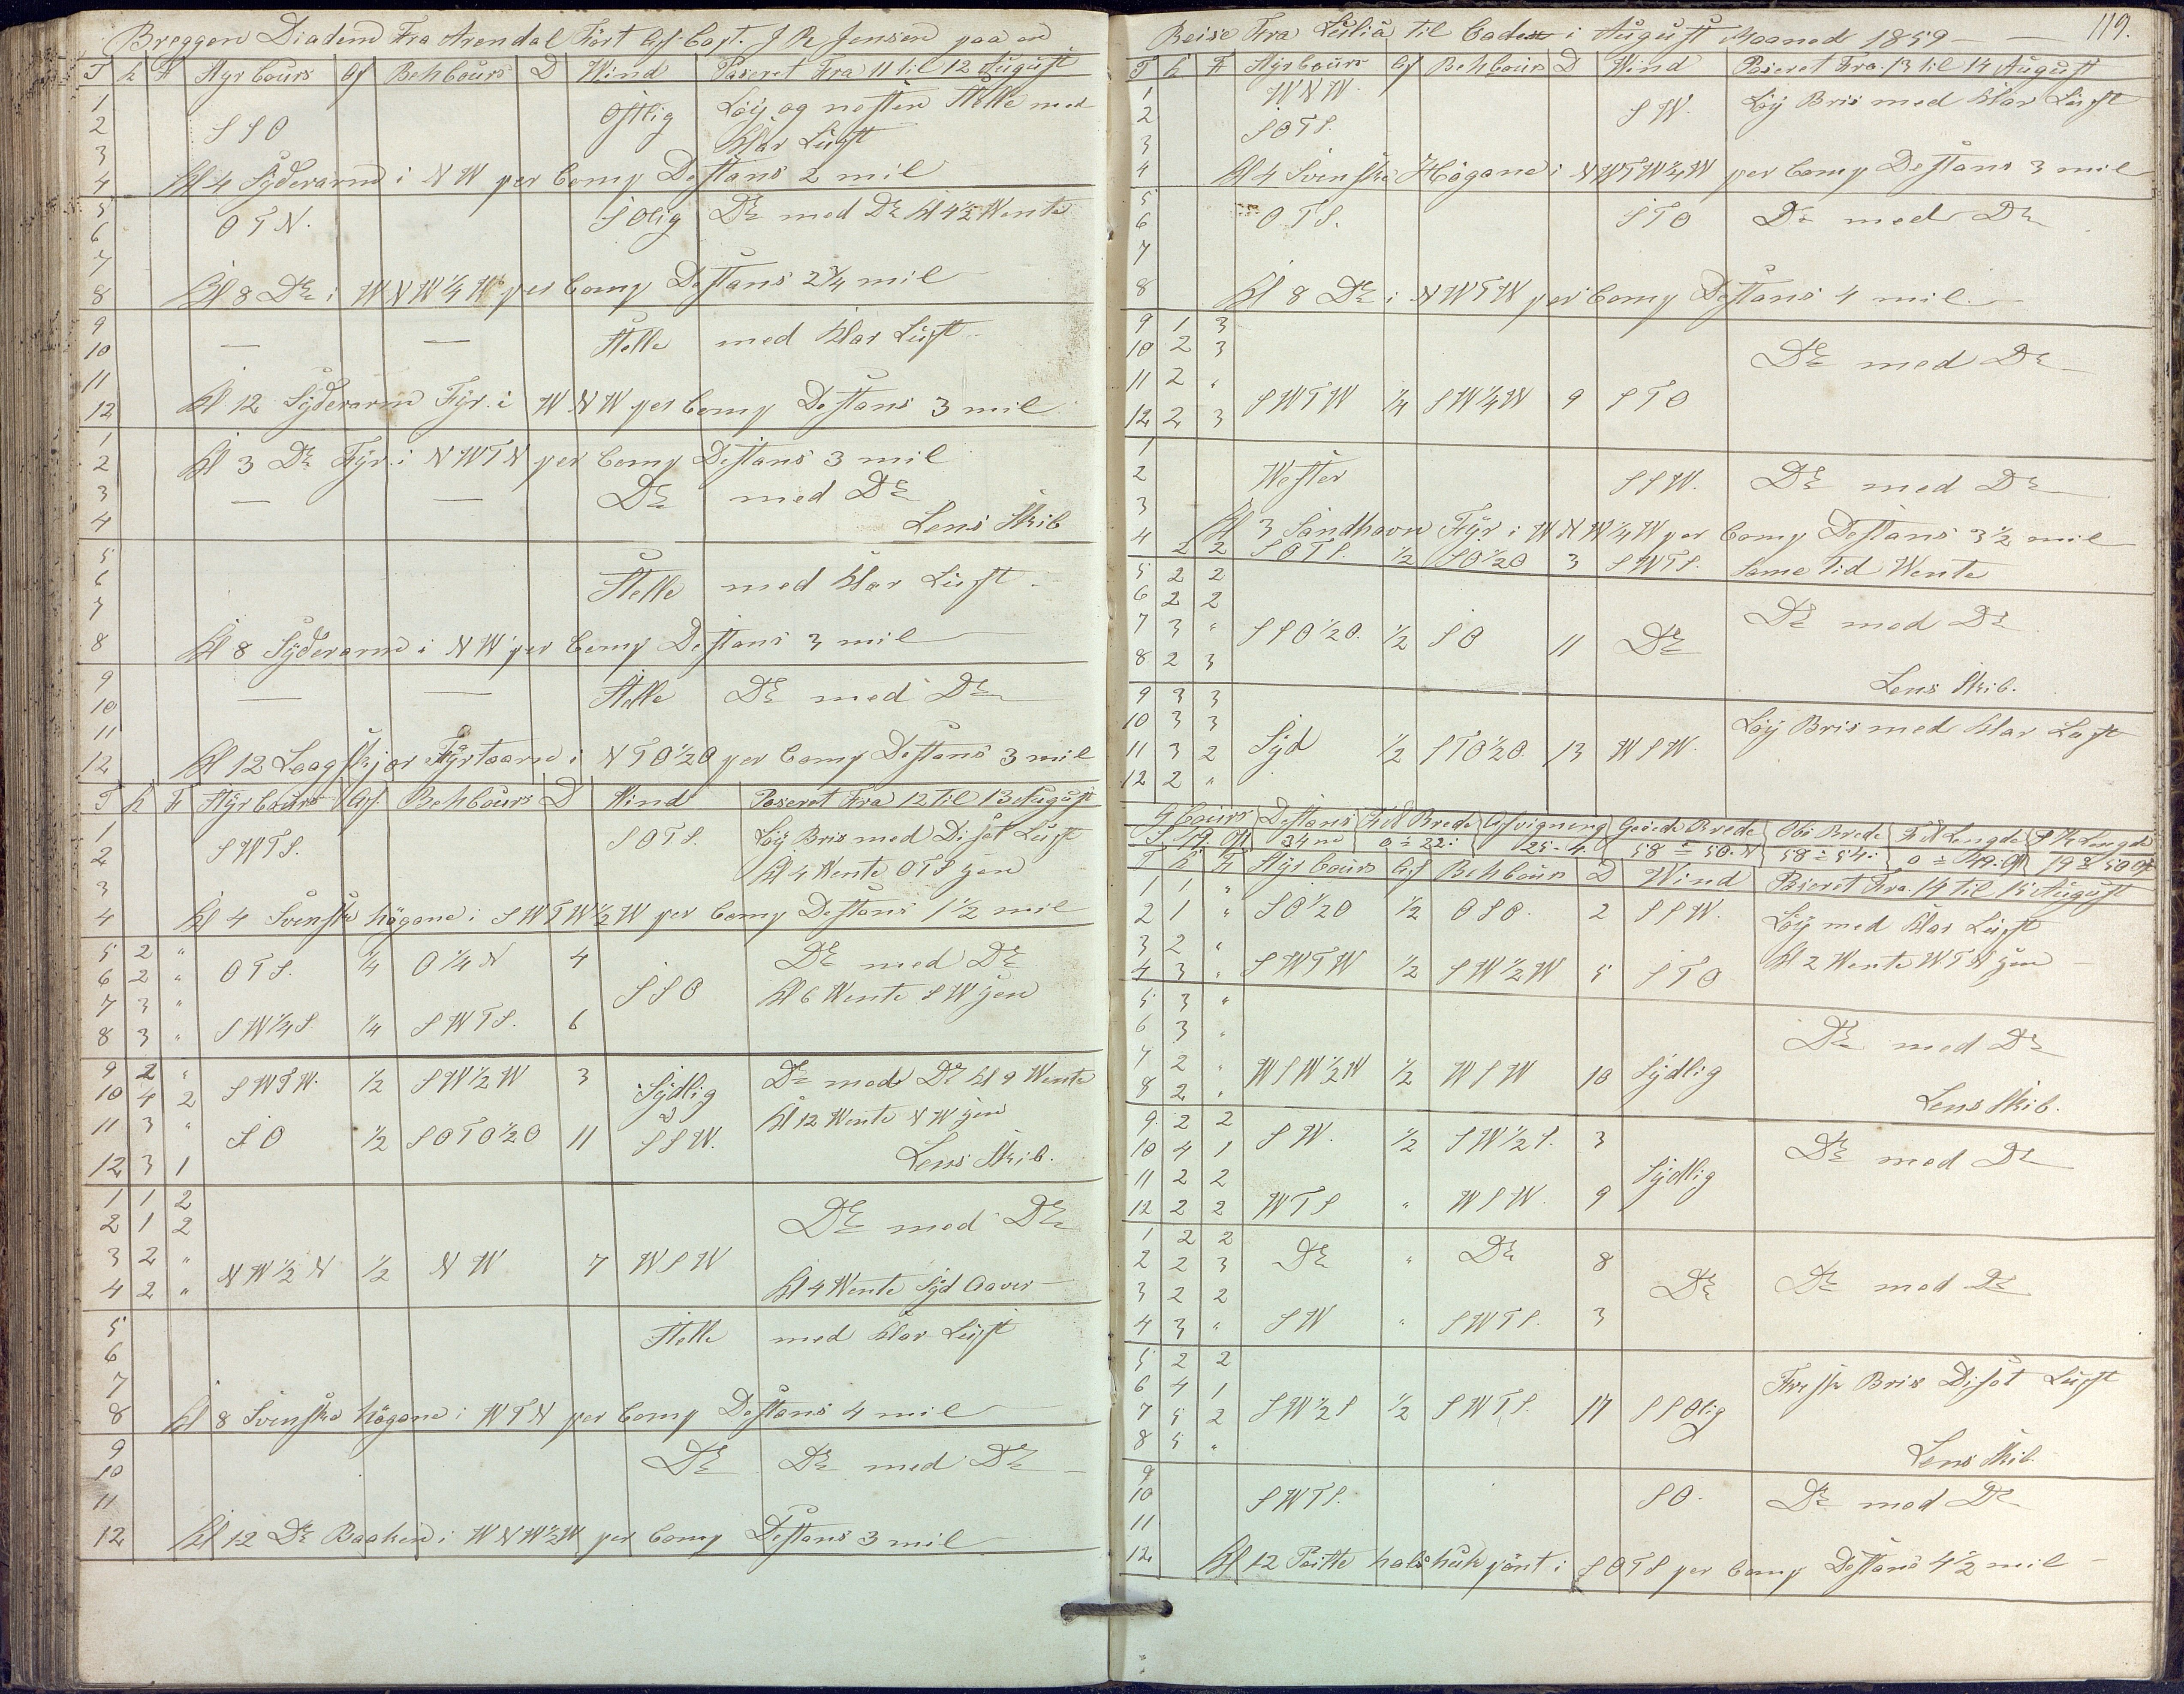 Breggen Diadem Fra Arendal Fört af Capt. J R Jensen paa en
T K F Styr Cours Af Beh Cours D Wind Paseret Fra 11 til 12 August
1 Östlig Löy og nesten Stelle med
2 S S O klar Luft
3
4 Kl 4 Syderarm i N W per Comp Destans 2 mil
5 O T N. S Olig Do med Do Kl 4½ Wente
6
7
8 Kl 8 Do i W N W ¼ W per Comp Destans 2¾ mil
9 — — Stelle med klar Luft
10
11
12 Kl 12 Syderarm Fyr i W N W per Comp Destans 3 mil
1
2 Kl 3 Do Fyr i N W T N per Comp Destans 3 mil
3 — — Do med Do
4 Lens Skib
5
6 Stelle med klar Luft
7
8 Kl 8 Syderarm i N W per Comp Destans 3 mil
9 — — Stelle Do med Do
10
11
12 Kl 12 Laagskjær Fyrtaarn i N T O ½ O per Comp Destans 3 mil
T K F Styr Cours Af. Beh Cours D Wind Paseret Fra 12 til 13 August
1 S W T S. S O T S. Löy Bris med Disöt Luft
2 Kl 4 Wente O T S yen
3
4 Kl 4 Svenska högane i S W T W ½ W per Comp Destans 1½ mil
5 2 " O T S. ¼ O ¼ N 4 Do med Do
6 2 " S S O Kl 6 Wente S W yen
7 3 "
8 3 " S W ¼ S ¼ S W T S. 6
9 2 " S W T W. ½ S W ½ W 3 Sydlig Do med Do Kl 9 Wente
10 4 2 Kl 12 Wente N W yen
11 3 " S O ½ S O T O ½ O 11 S S W.
12 3 1 Lens Skib.
1 1 2 Do med Do
2 1 2
3 2 " N W ½ N ½ N W 7 W S W
4 2 " Kl 4 Wente Syd Aaver
5 Stelle med klar Luft
6
7
8 Kl 8 Svenska högane i W T N per Comp Destans 4 mil
9 Do Do med Do
10
11
12 Kl 12 Do Baaken i W N W ½ W per Comp Destans 3 mil
119.
Reise Fra Lulia til Caden i August Maaned 1859
T K F Styr Cours Af Beh Cours D Wind Paseret Fra 13 til 14 August
1 W N W. S W. Löy Bris med klar Luft
2 S O T S.
3
4 Kl 4 Svenska Högane i N W T W ¼ W per Comp Destans 3 mil
5
6 O T S. S T O Do med Do
7
8 Kl 8 Do i N W T W per Comp Destans 4 mil
9 1 3
10 2 3 Do med Do
11 2 "
12 2 3 S W T W ¼ S W ¼ W 9 S T O
1
2 Wester S S W. Do med Do
3 Kl 3 Sandhavn Fyr i W N W ¼ W per Comp Destans 3½ mil
4 2 2 S O T S. ½ S O ½ O 3 S W T S. Same tid Wente
5 2 2
6 2 2 Do med Do
7 3 " S S O ½ O. ½ S O 11 Do
8 2 3 Lens Skib.
9 3 3 Löy Bris med klar Luft
10 3 3
11 3 2 Syd ½ S T O ½ O. 13 W S W.
12 2 "
G Cours Destans Brede Afvigning Gesede Brede Obs Brede Lengde Lengde
S 49. Ost 34 m 0 = 22: 25 - 4. 58 = 50. N 58 = 54: 0 = 49. O 19 = 50 O
T K F Styr Cours Af Beh Cours D Wind Paseret Fra. 14 til 15 August
1 1 "
2 1 " S O ½ O ½ O S O. 2 S S W. Löy med klar Luft
3 2 " Kl 2 Wente W T N yen
4 3 " S W T W ½ S W ½ W 5 S T O
5 3 "
6 3 " Do med Do
7 2 " W S W ½ W ½ W S W 10 Sydlig
8 2 " Lens Skib.
9 2 2 S W. ½ S W ½ S. 3 Do med Do
10 4 1 Sydlig
11 2 2
12 2 2 W T S " W S W. 9
1 2 2
2 2 3 Do " Do 8
3 2 2 Do Do med Do
4 3 " S W " S W T S. 3
5 2 2
6 4 1 Fresk Bris Disöt Luft
7 5 2 S W ½ S ½ S W T S. 17 S S Olig
8 5 " Lens Skib.
9
10 S W T S. S O. Do med Do
11
12 Kl 12 pönt i S O T S per Comp Destans 4½ mil